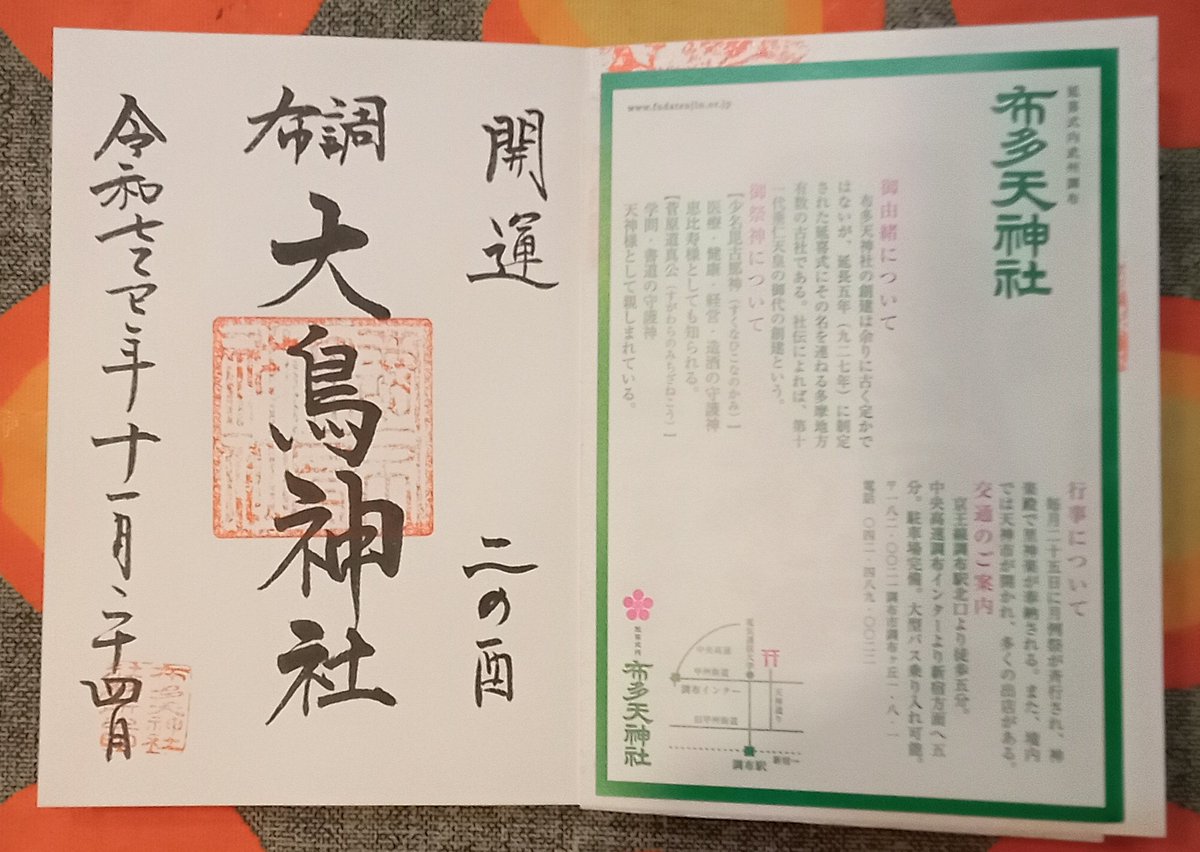 延喜式内武州調布
布多天神社
www.fudatenjin.or.jp
御由緒について
布多天神社の創建は余りに古く定かで
はないが、延長五年（九二七年）に制定
された延喜式にその名を連ねる多摩地方
有数の古社である。社伝によれば、第十
一代垂仁天皇の御代の創建という。
御祭神について
【少名毘古那神（すくなひこなのかみ）】
医療・健康・経営・造酒の守護神
恵比寿様としても知られる。
【菅原道真公（すがわらのみちざねこう）】
学問・書道の守護神
天神様として親しまれている。
行事について
毎月二十五日に月例祭が斉行され、神
楽殿で里神楽が奉納される。また、境内
では天神市が開かれ、多くの出店がある。
交通のご案内
京王線調布駅北口より徒歩五分。
中央高速調布インターより新宿方面へ五
分。駐車場完備。大型バス乗り入れ可能。
〒一八二・〇〇二一 調布市調布ヶ丘一・八・一
電話 〇四二・四八九・〇〇二二
電気通信大学
中央高速
甲州街道
調布インター
旧甲州街道
天神通り
調布駅
新宿→
延喜式内
布多天神社
開運 二の酉
調布
大鳥神社
令和七乙巳年十一月二十四日